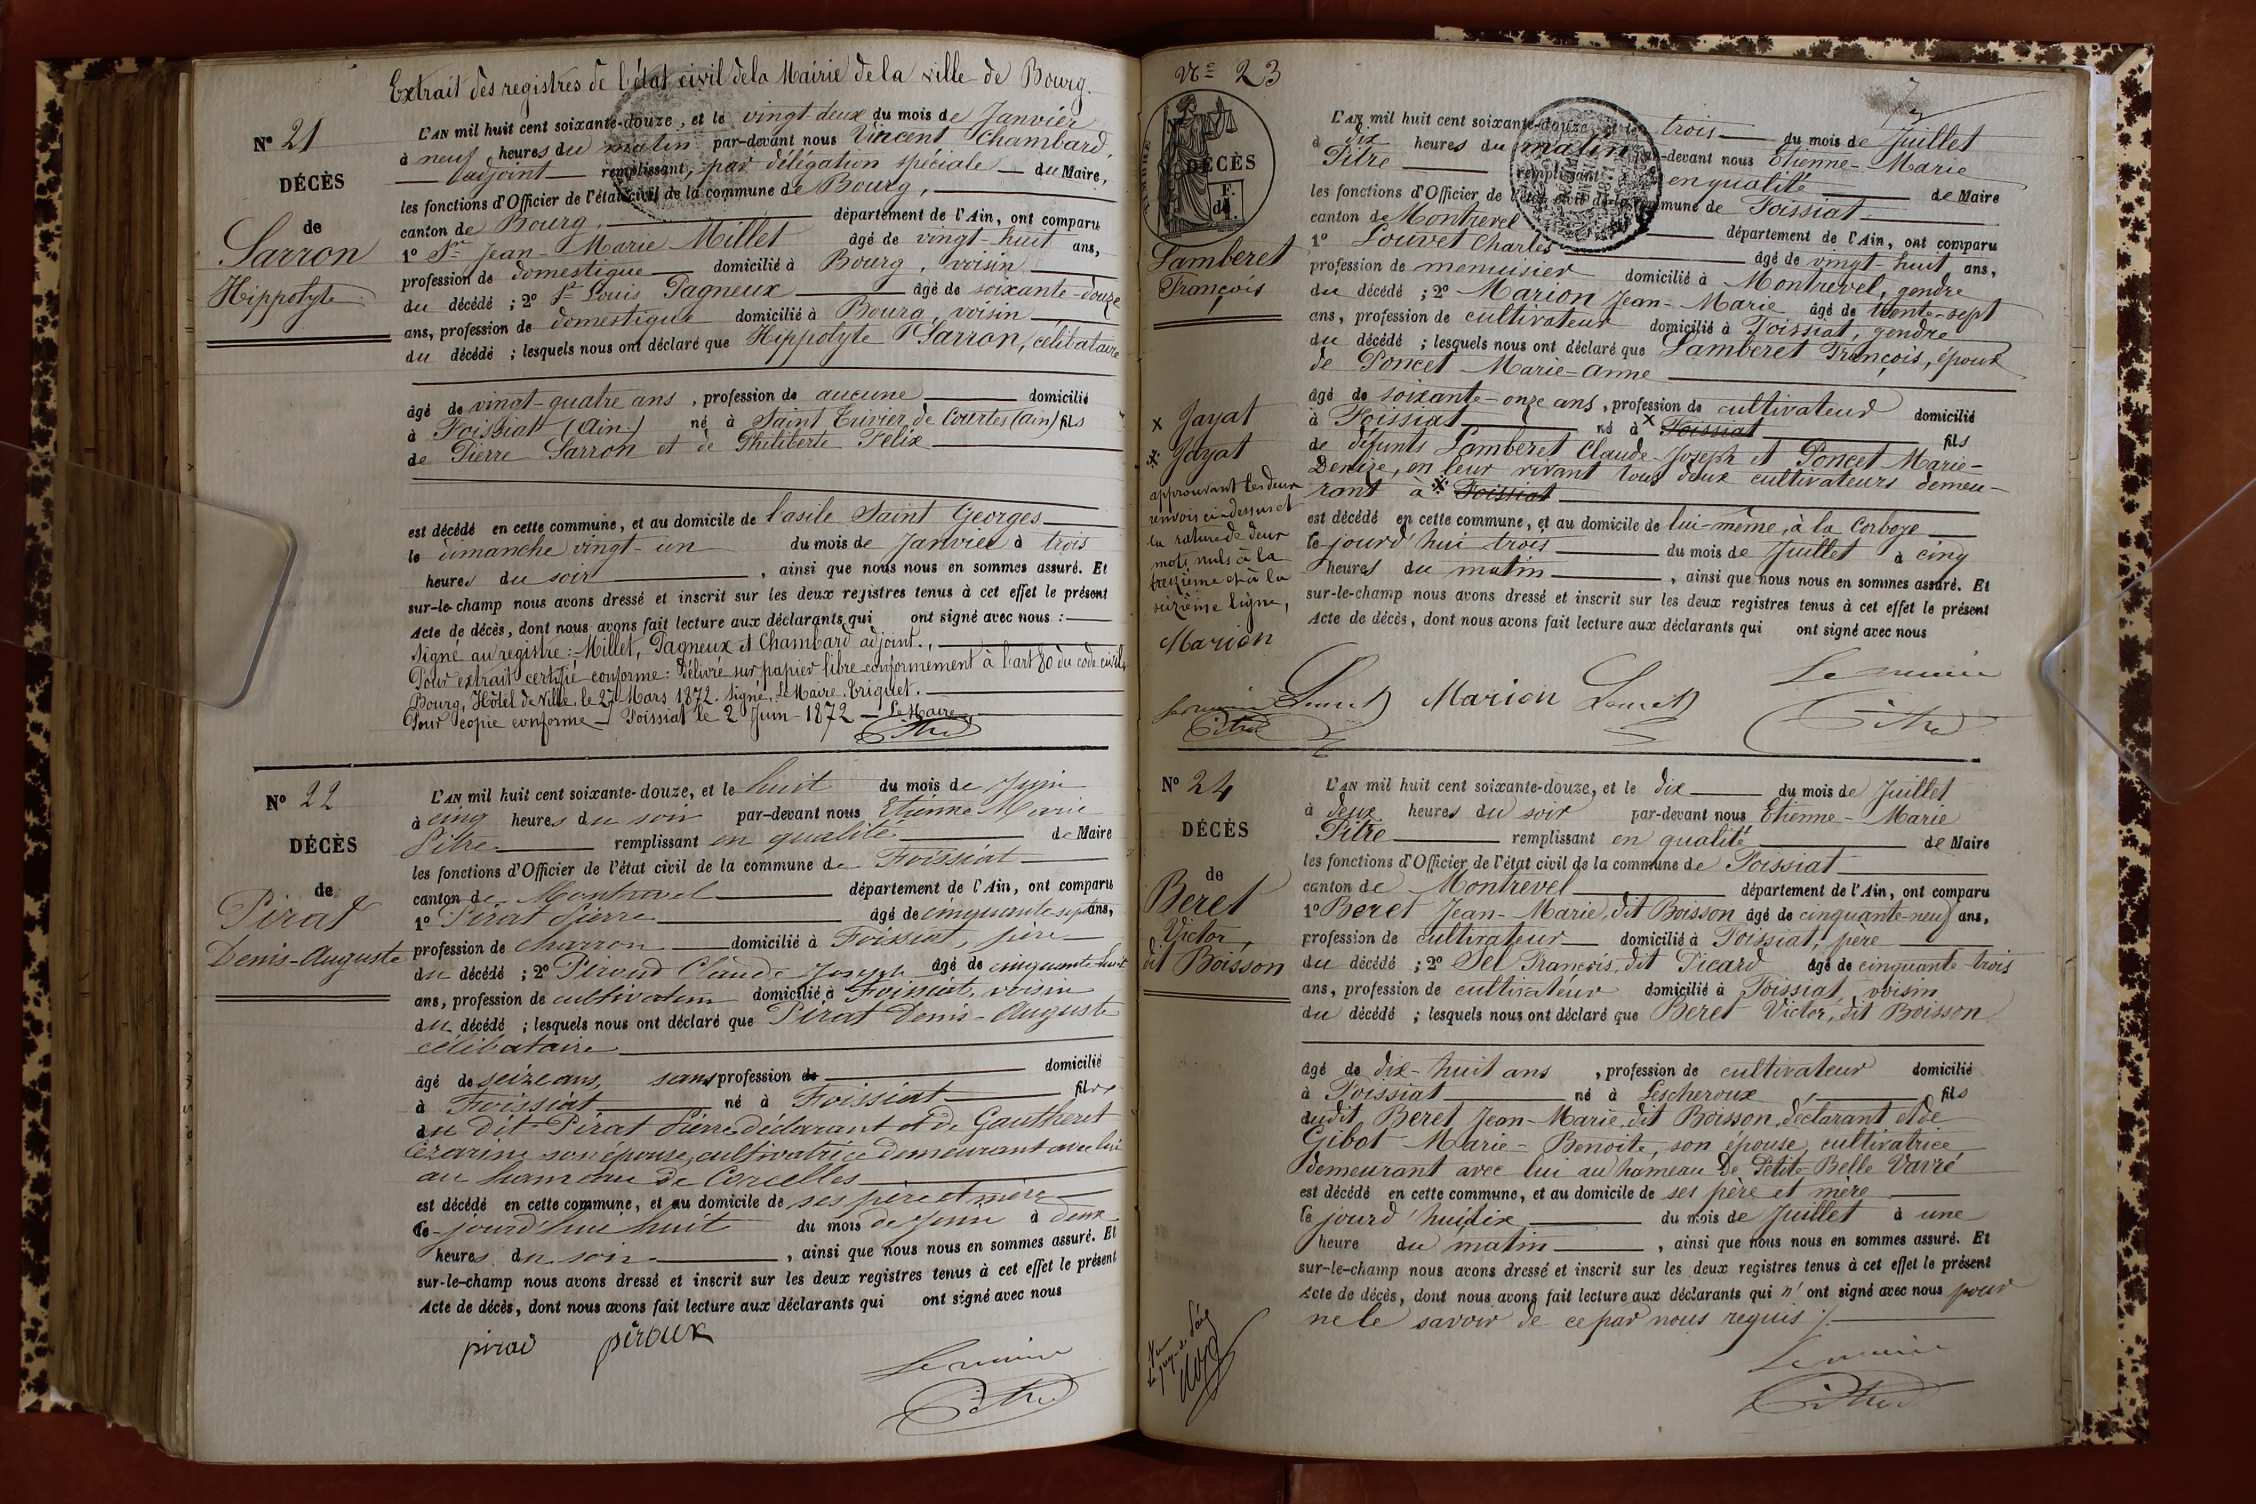 Extrait des registres de l'état civil de la Mairie de la ville de Bourg.
N° 21
DÉCÈS
de
Sarron
Hippolyte
L'AN mil huit cent soixante-douze, et le vingt-deux du mois de Janvier
à neuf heures du matin par-devant nous Vincent Chambard,
l'adjoint remplissant, par délégation spéciale du Maire,
les fonctions d'Officier de l'état civil de la commune de Bourg,
canton de Bourg, département de l'Ain, ont comparu
1° Sr Jean-Marie Millet âgé de vingt-huit ans,
profession de domestique domicilié à Bourg, voisin
du décédé ; 2° Sr Louis Pagneux âgé de soixante-douze
ans, profession de domestique domicilié à Bourg, voisin
du décédé ; lesquels nous ont déclaré que Hippolyte Sarron, célibataire
âgé de vingt-quatre ans, profession de aucune domicilié
à Foissiat (Ain) né à Saint Trivier de Courtes (ain) fils
de Pierre Sarron et de Philiberte Félix
est décédé en cette commune, et au domicile de l'asile Saint Georges
le dimanche vingt-un du mois de Janvier à trois
heures du soir, ainsi que nous nous en sommes assuré. Et
sur-le-champ nous avons dressé et inscrit sur les deux registres tenus à cet effet le présent
Acte de décès, dont nous avons fait lecture aux déclarants qui ont signé avec nous :
Signé au registre : Millet, Pagneux et Chambard adjoint.,
Pour extrait certifié conforme : Délivré sur papier libre conformement à l'art 80 du code civil,
Bourg, Hôtel de Ville, le 27 Mars 1872. Signé, Le Maire, Triquet.
Pour copie conforme Foissiat le 2 Juin 1872 Le Maire
Pitre
N° 22
DÉCÈS
de
Pirat
Denis-Auguste
L'AN mil huit cent soixante-douze, et le huit du mois de Juin
à cinq heures du soir par-devant nous Etienne Marie
Pitre remplissant en qualité de Maire
les fonctions d'Officier de l'état civil de la commune de Foissiat
canton de Montrevel département de l'Ain, ont comparu
1° Pirat Pierre âgé de cinquante-sept ans,
profession de charron domicilié à Foissiat, père
du décédé ; 2° Piroud Claude Joseph âgé de cinquante huit
ans, profession de cultivateur domicilié à Foissiat, voisin
du décédé ; lesquels nous ont déclaré que Pirat Denis-Auguste
célibataire
âgé de seize ans, sans profession de domicilié
à Foissiat né à Foissiat fils
du dit Pirat Pierre déclarant et de Gautheret
Cézarine son épouse, cultivatrice demeurant avec lui
au hameau de Corcelles
est décédé en cette commune, et au domicile de ses père et mère
le jourd'hui huit du mois de Juin à deux
heures du soir, ainsi que nous nous en sommes assuré. Et
sur-le-champ nous avons dressé et inscrit sur les deux registres tenus à cet effet le présent
Acte de décès, dont nous avons fait lecture aux déclarants qui ont signé avec nous
pirat piroux
Le maire
Pitre
N° 23
DÉCÈS
Lamberet
François
x Jayat
x Jayat
approuvant les deux
renvois ci-dessus et
la rature de deux
mots nuls à la
treizième et à la
seizième ligne,
Marion
Le maire Louvet
Pitre
7
L'AN mil huit cent soixante-douze, et le trois du mois de Juillet
à dix heures du matin par-devant nous Etienne-Marie
Pitre remplissant en qualité de Maire
les fonctions d'Officier de l'état civil de la commune de Foissiat
canton de Montrevel département de l'Ain, ont comparu
1° Louvet Charles âgé de vingt huit ans,
profession de menuisier domicilié à Montrevel, gendre
du décédé ; 2° Marion Jean-Marie âgé de trente-sept
ans, profession de cultivateur domicilié à Foissiat, gendre
du décédé ; lesquels nous ont déclaré que Lamberet François, époux
de Poncet Marie-anne
âgé de soixante-onze ans, profession de cultivateur domicilié
à Foissiat né à x Foissiat fils
de défunts Lamberet Claude-Joseph et Poncet Marie-
Denise, en leur vivant tous deux cultivateurs demeu-
rant à x Foissiat
est décédé en cette commune, et au domicile de lui-même, à la Corboze
le jourd'hui trois du mois de Juillet à cinq
heures du matin, ainsi que nous nous en sommes assuré. Et
sur-le-champ nous avons dressé et inscrit sur les deux registres tenus à cet effet le présent
Acte de décès, dont nous avons fait lecture aux déclarants qui ont signé avec nous
Marion Louvet
Le maire
Pitre
N° 24
DÉCÈS
de
Beret
Victor,
dit Boisson
L'AN mil huit cent soixante-douze, et le dix du mois de Juillet
à deux heures du soir par-devant nous Etienne-Marie
Pitre remplissant en qualité de Maire
les fonctions d'Officier de l'état civil de la commune de Foissiat
canton de Montrevel département de l'Ain, ont comparu
1° Beret Jean-Marie, dit Boisson âgé de cinquante-neuf ans,
profession de cultivateur domicilié à Foissiat, père
du décédé ; 2° Sel François, dit Picard âgé de cinquante-trois
ans, profession de cultivateur domicilié à Foissiat, voisin
du décédé ; lesquels nous ont déclaré que Beret Victor, dit Boisson
âgé de dix-huit ans, profession de cultivateur domicilié
à Foissiat né à Lescheroux, fils
dudit Beret Jean-Marie, dit Boisson, déclarant et de
Gibot Marie-Benoite, son épouse, cultivatrice
demeurant avec lui au hameau de Petite Belle Vavré
est décédé en cette commune, et au domicile de ses père et mère
le jourd'hui dix du mois de Juillet à une
heure du matin, ainsi que nous nous en sommes assuré. Et
sur-le-champ nous avons dressé et inscrit sur les deux registres tenus à cet effet le présent
Acte de décès, dont nous avons fait lecture aux déclarants qui n'ont signé avec nous pour
ne le savoir de ce par nous requis
Le maire
Pitre